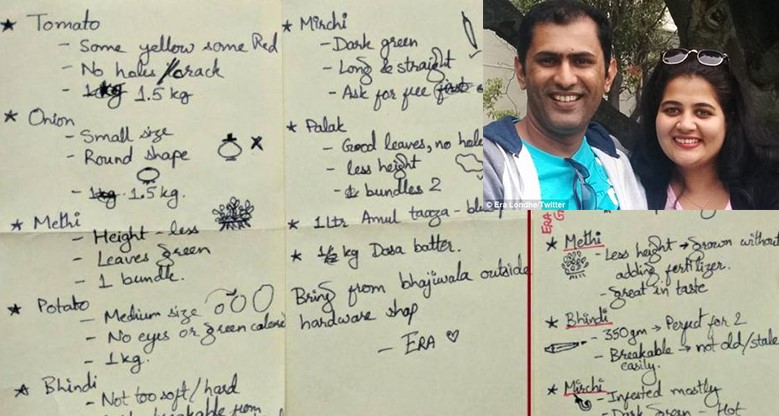 ★ Tomato
- Some yellow some Red
- No holes/crack
- 1.5 kg
★ Onion
- Small size
- Round shape
- 1.5 kg.
★ Methi
- Height - less
- Leaves green
- 1 bundle.
★ Potato
- Medium size
- No eyes or green
- 1kg.
★ Bhindi
- Not too soft/hard
★ Mirchi
- Dark green
- Long & straight
- Ask for free
★ Palak
- Good leaves, no
- less height
- bundles 2
★ 1 ltr Amul taaza -
★ kg Dosa batter.
Bring from bhajiwala outside
hardware shop
- ERA ♡
© Era Londhe/Twitter
ERA
★ Methi
- Less height → grown without
adding fertilizer.
- Great in taste
★ Bhindi
- 350gm → Perfect for 2
- Breakable → not old/stale
easily.
★ Mirchi
- Infected mostly